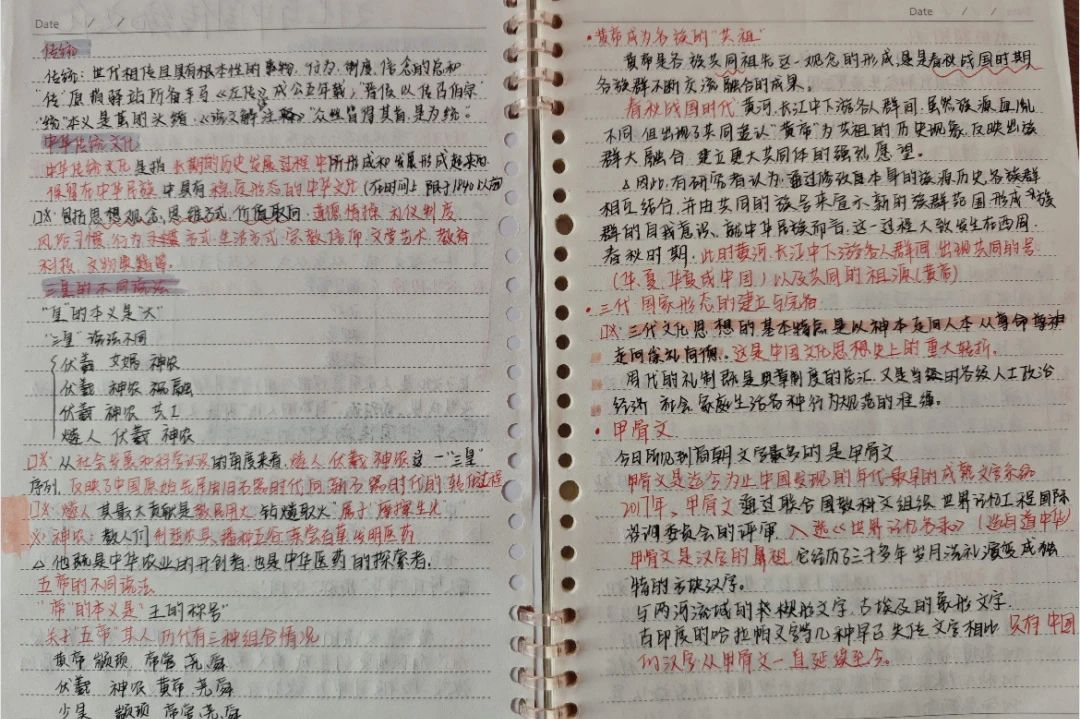 Date / /
传统
传统：世代相传且具有根本性的事物、行为、制度、信念的总和
"传"原指驿站所备车马《左传》成公五年载，晋侯以传召伯宗
"统"本义是茧的头绪，《说文解字注释》"众丝皆得其首，是为统"。
中华传统文化
中华传统文化是指 长期的历史发展过程中所形成和发展形成起来的
保留在中华民族中具有稳定形态的中华文化（在时间上 限于1840以前
包括思想观念、思维方式、价值取向、道德情操、礼仪制度
风俗习惯、行为方式、生活方式、宗教信仰、文学艺术、教育
科技、文物典籍等。
三皇的不同说法
"皇"的本义是"大"
"三皇"说法不同
伏羲 女娲 神农
伏羲 神农 祝融
伏羲 神农 共工
燧人 伏羲 神农
从社会发展和科学认识的角度来看，燧人 伏羲 神农这一"三皇"
序列，反映了中国原始先民由旧石器时代向新石器时代的转化过程
燧人 其最大贡献是教民用火"钻燧取火"属于"摩擦生火"
神农：教人们制造农具、播种五谷、亲尝百草、发明医药
△ 他既是中华农业的开创者，也是中华医药的探索者，
五帝的不同说法
"帝"的本义是"王的称号"
关于"五帝"其人 历代有三种组合情况
黄帝 颛顼 帝喾 尧、舜
伏羲 神农 黄帝、尧、舜
少昊 颛顼 帝喾、尧、舜
Date / /
·黄帝成为各族的"共祖"
黄帝是各族共同祖先这一观念的形成，是春秋战国时期
各族群不断交流融合的成果。
春秋战国时代 黄河、长江中下游各人群间，虽然族源血胤
不同，但出现了共同追认"黄帝"为共祖的历史现象，反映出族
群大融合、建立更大共同体的强烈愿望。
△因此，有研究者认为：通过修改自本身的族源历史，各族群
相互结合，并由共同的族号来宣示新的族群范围形成新族
群的自我意识。就中华民族而言，这一过程大致发生在西周
春秋时期，此时的黄河、长江中下游各人群间，出现共同的号
（华、夏、华夏或中国）以及共同的祖源（黄帝）
·三代：国家形态的建立与完备
三代文化思想的基本特点是以神本走向人本 从尊命尊神
走向崇礼尚德，这是中国文化思想史上的重大转折。
周代的礼制既是典章制度的总汇，又是当级的各级人士政治
经济 社会 家庭生活各种行为规范的准绳。
·甲骨文
今日所见到商朝文字最多的是甲骨文
甲骨文是迄今为止中国发现的年代最早的成熟文字系统
2017年，甲骨文通过联合国教科文组织世界记忆工程国际
咨询委员会的评审，入选《世界记忆名录》
甲骨文是汉字的鼻祖，它经历了三千多年岁月洗礼演变成独
特的方块汉字。
与两河流域的楔形文字，古埃及的象形文字，
古印度的哈拉帕文字等几种早已失传文字相比，只有中国
的汉字从甲骨文一直延续至今。